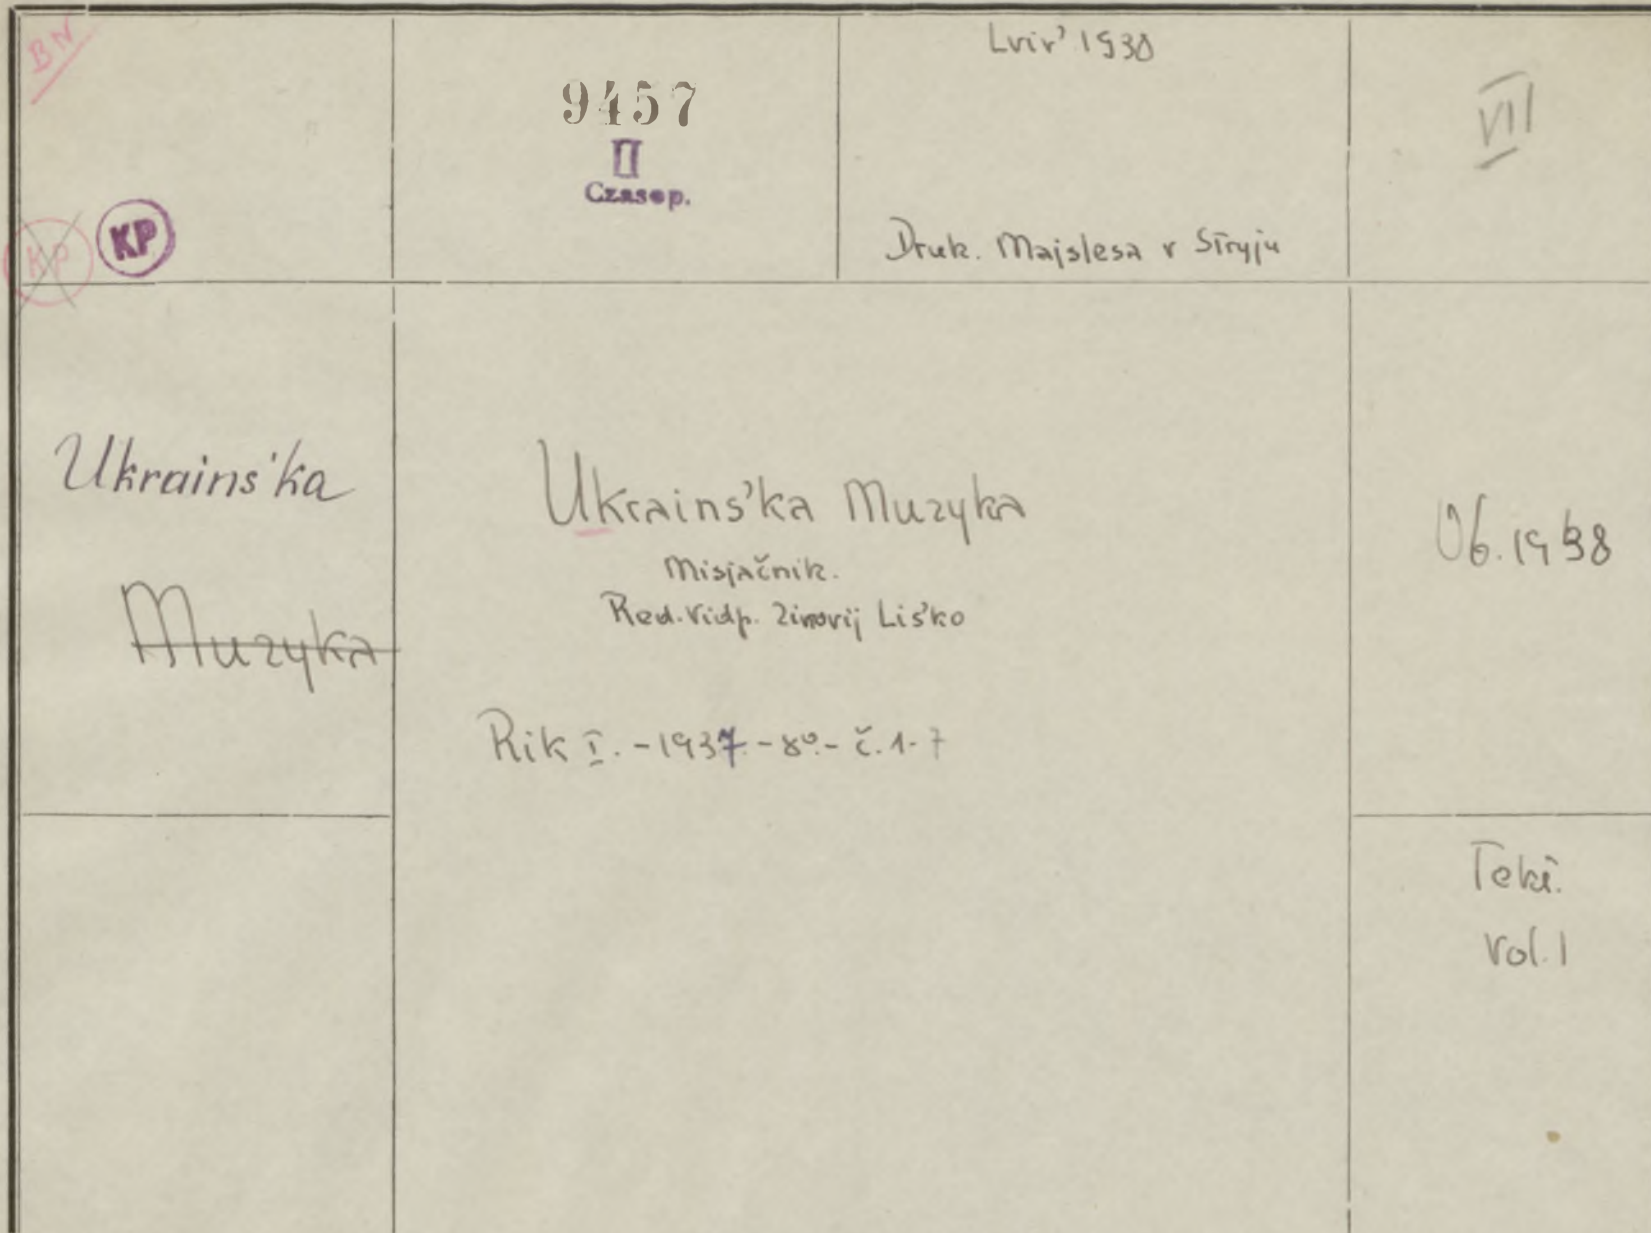 BN
9457
II
Czasop.
Lviv' 1938
Druk. Majslesa v Stryju
VII
KP
KP
Ukrains'ka
Muzyka
Ukrains'ka Muzyka
Misjačnik.
Red. vidp. Zinovij Lis'ko
Rik I. - 1937. - 8º. - č. 1-7
Ob. 1938
Teki.
Vol. 1